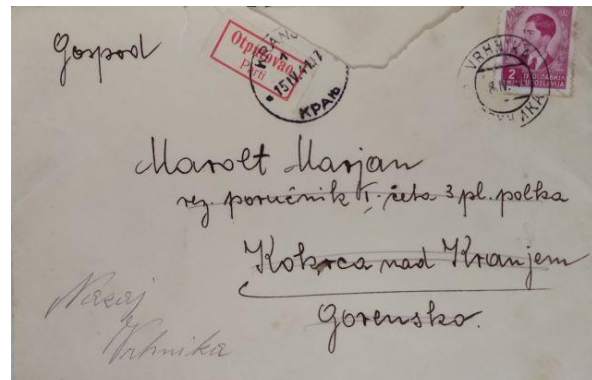 Gospod
Otputovao
Parti
KRANJ
1
15.IV.41.17
КРАЊ
VRHNIKA
8.IV.
2
ЈУГОСЛАВИЈА
JUGOSLAVIJA
Marolt Marjan
rez. poručnik I. četa 3 pl. polka
Kokrca nad Kranjem
Gorensko.
Nazaj
Vrhnika